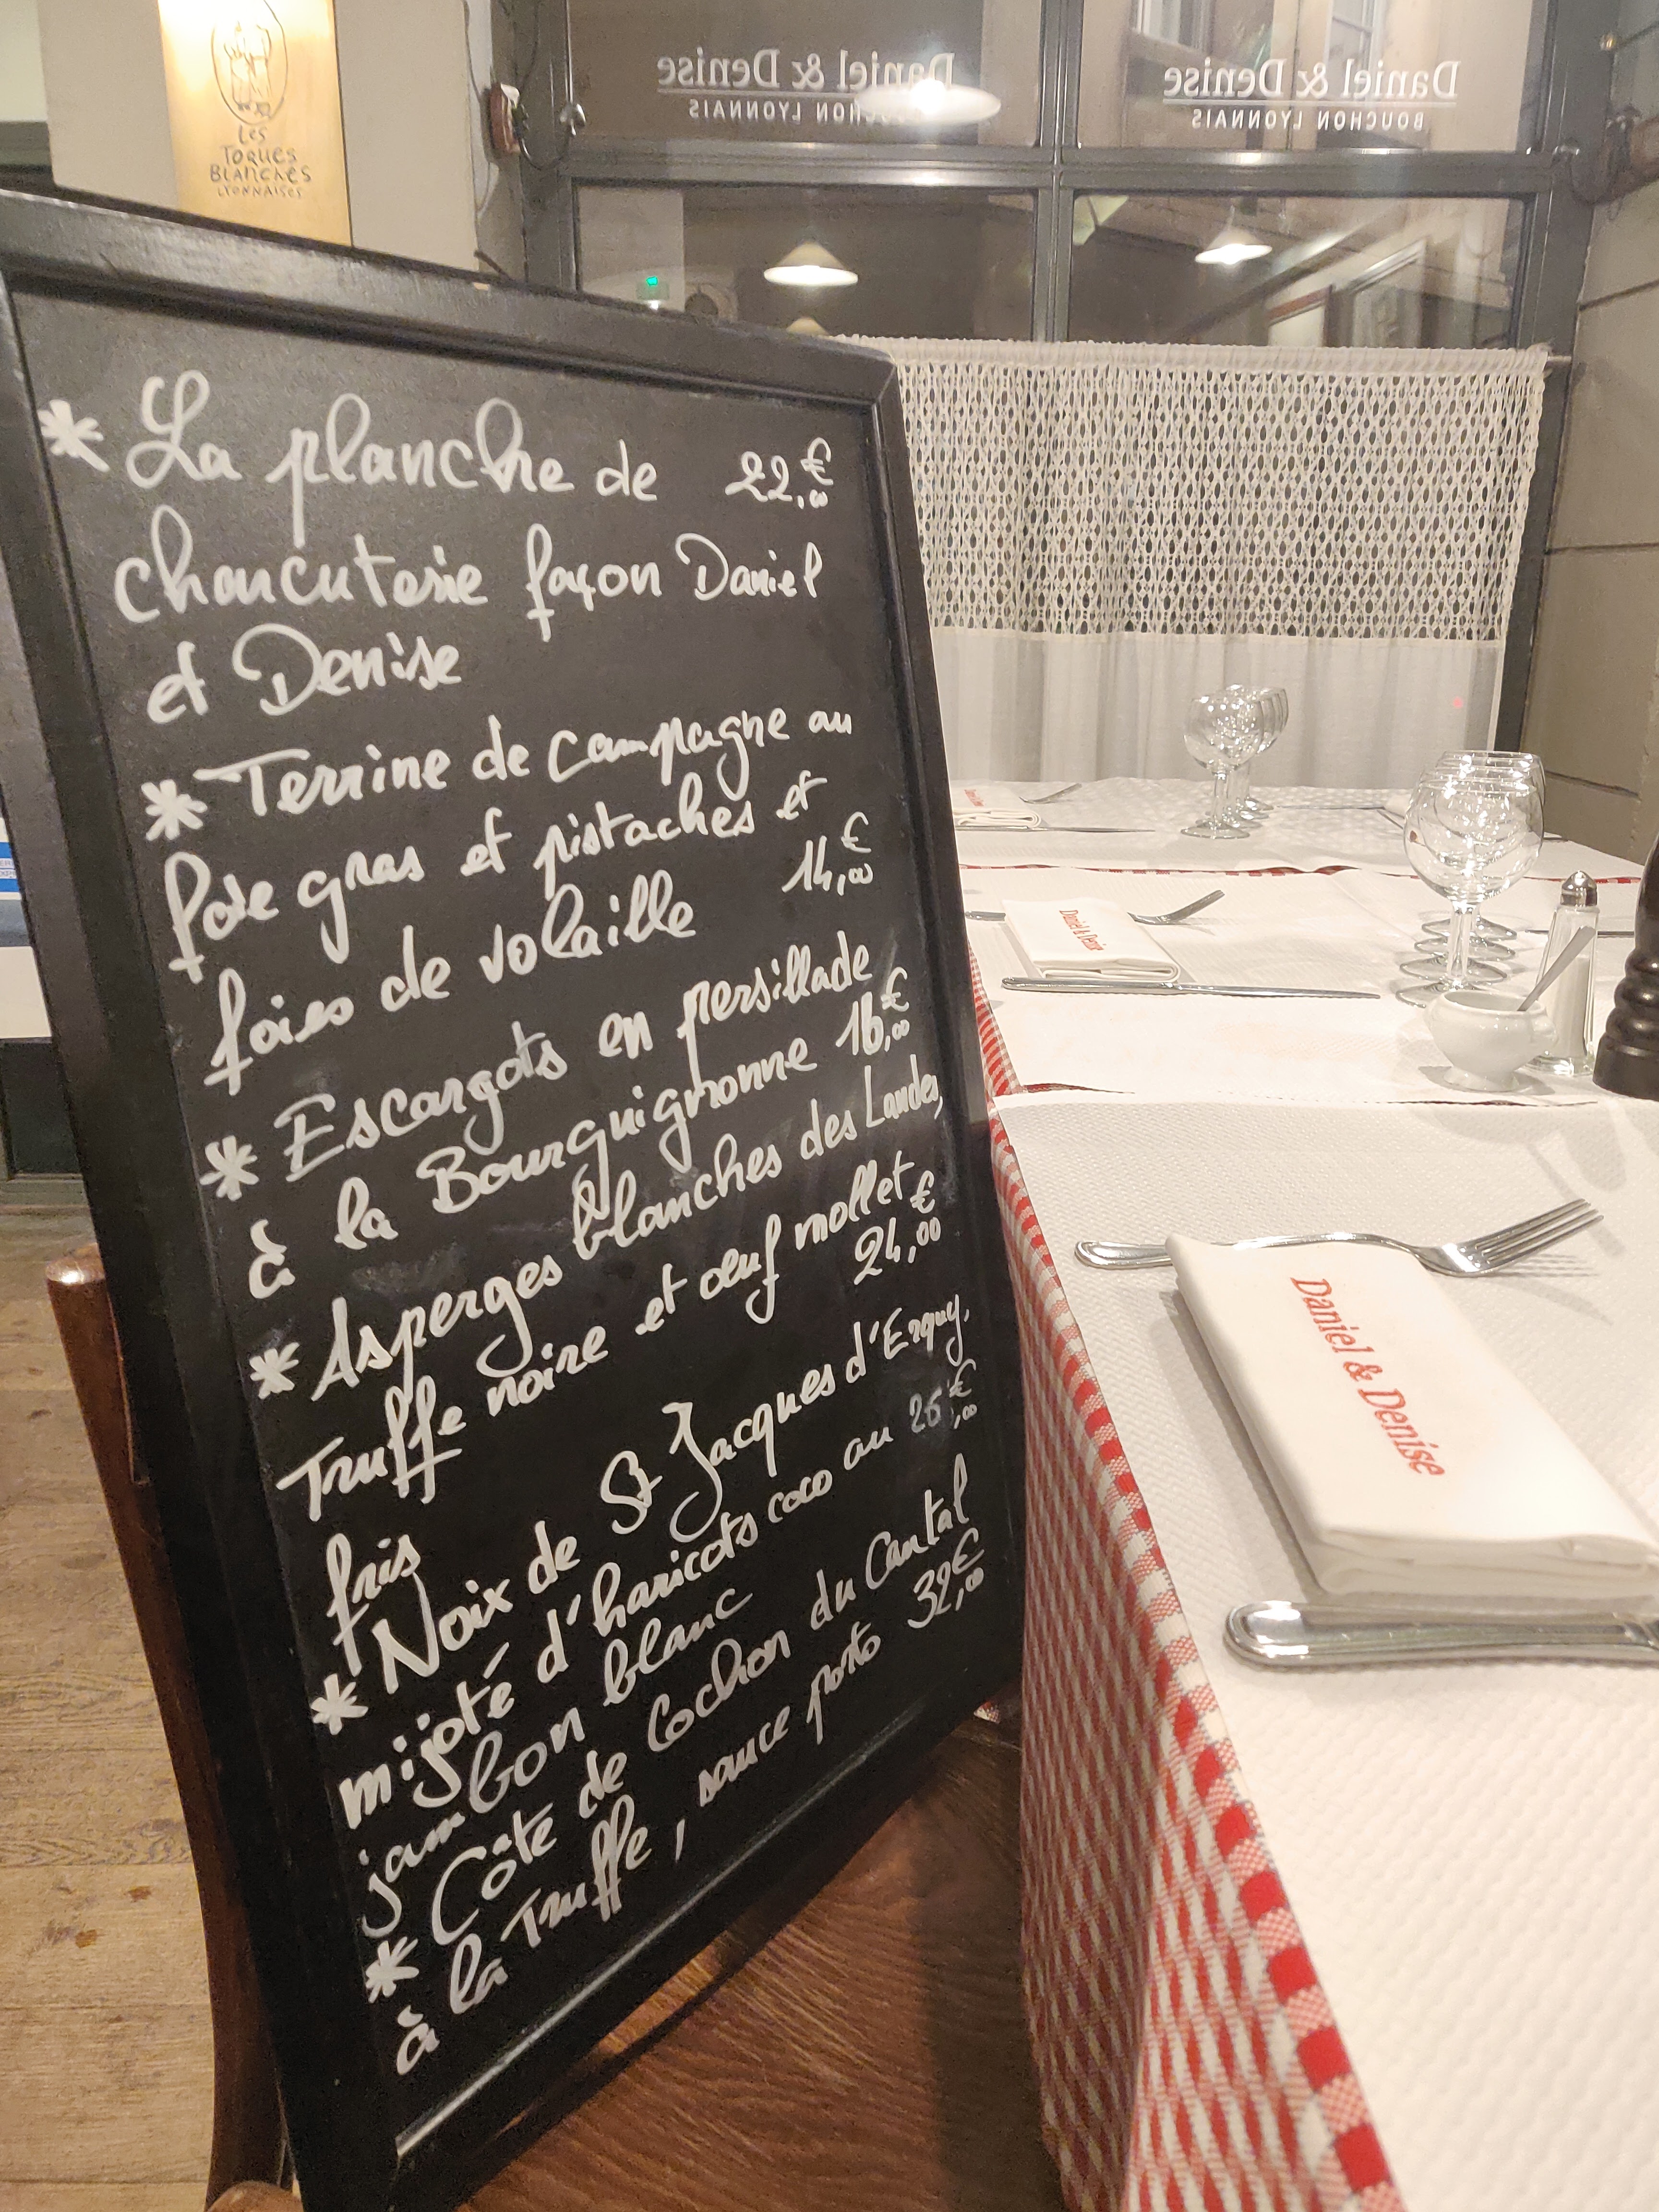 Les
Toques
Blanches
Lyonnaises
Daniel & Denise
BOUCHON LYONNAIS
Daniel & Denise
BOUCHON LYONNAIS
* La planche de 22,00€
charcuterie façon Daniel
et Denise
* Terrine de campagne au
foie gras et pistaches et
foies de volaille 14,00€
* Escargots en persillade
à la Bourguignonne 16,00€
* Asperges blanches des Landes,
Truffe noire et œuf mollet
24,00€
fris
* Noix de St Jacques d'Erquy,
mijoté d'haricots coco au 26,00€
jambon blanc
* Côte de Cochon du Cantal
à la Truffe, sauce porto 32,00€
Daniel & Denise
Daniel & Denise